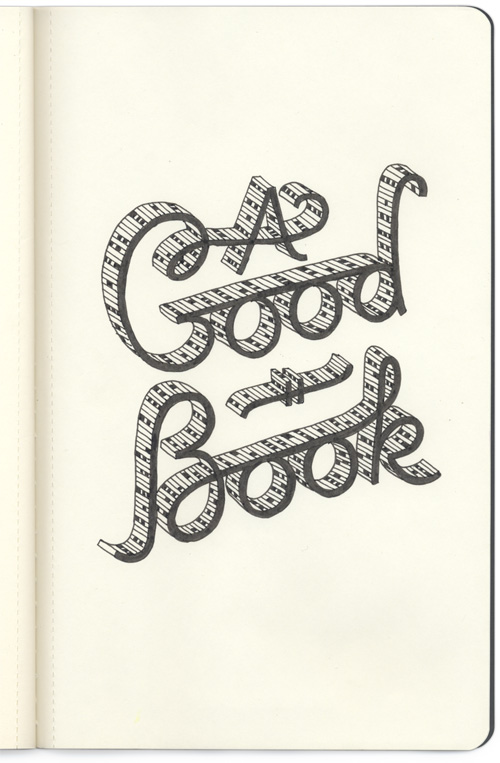 A
Good
Book